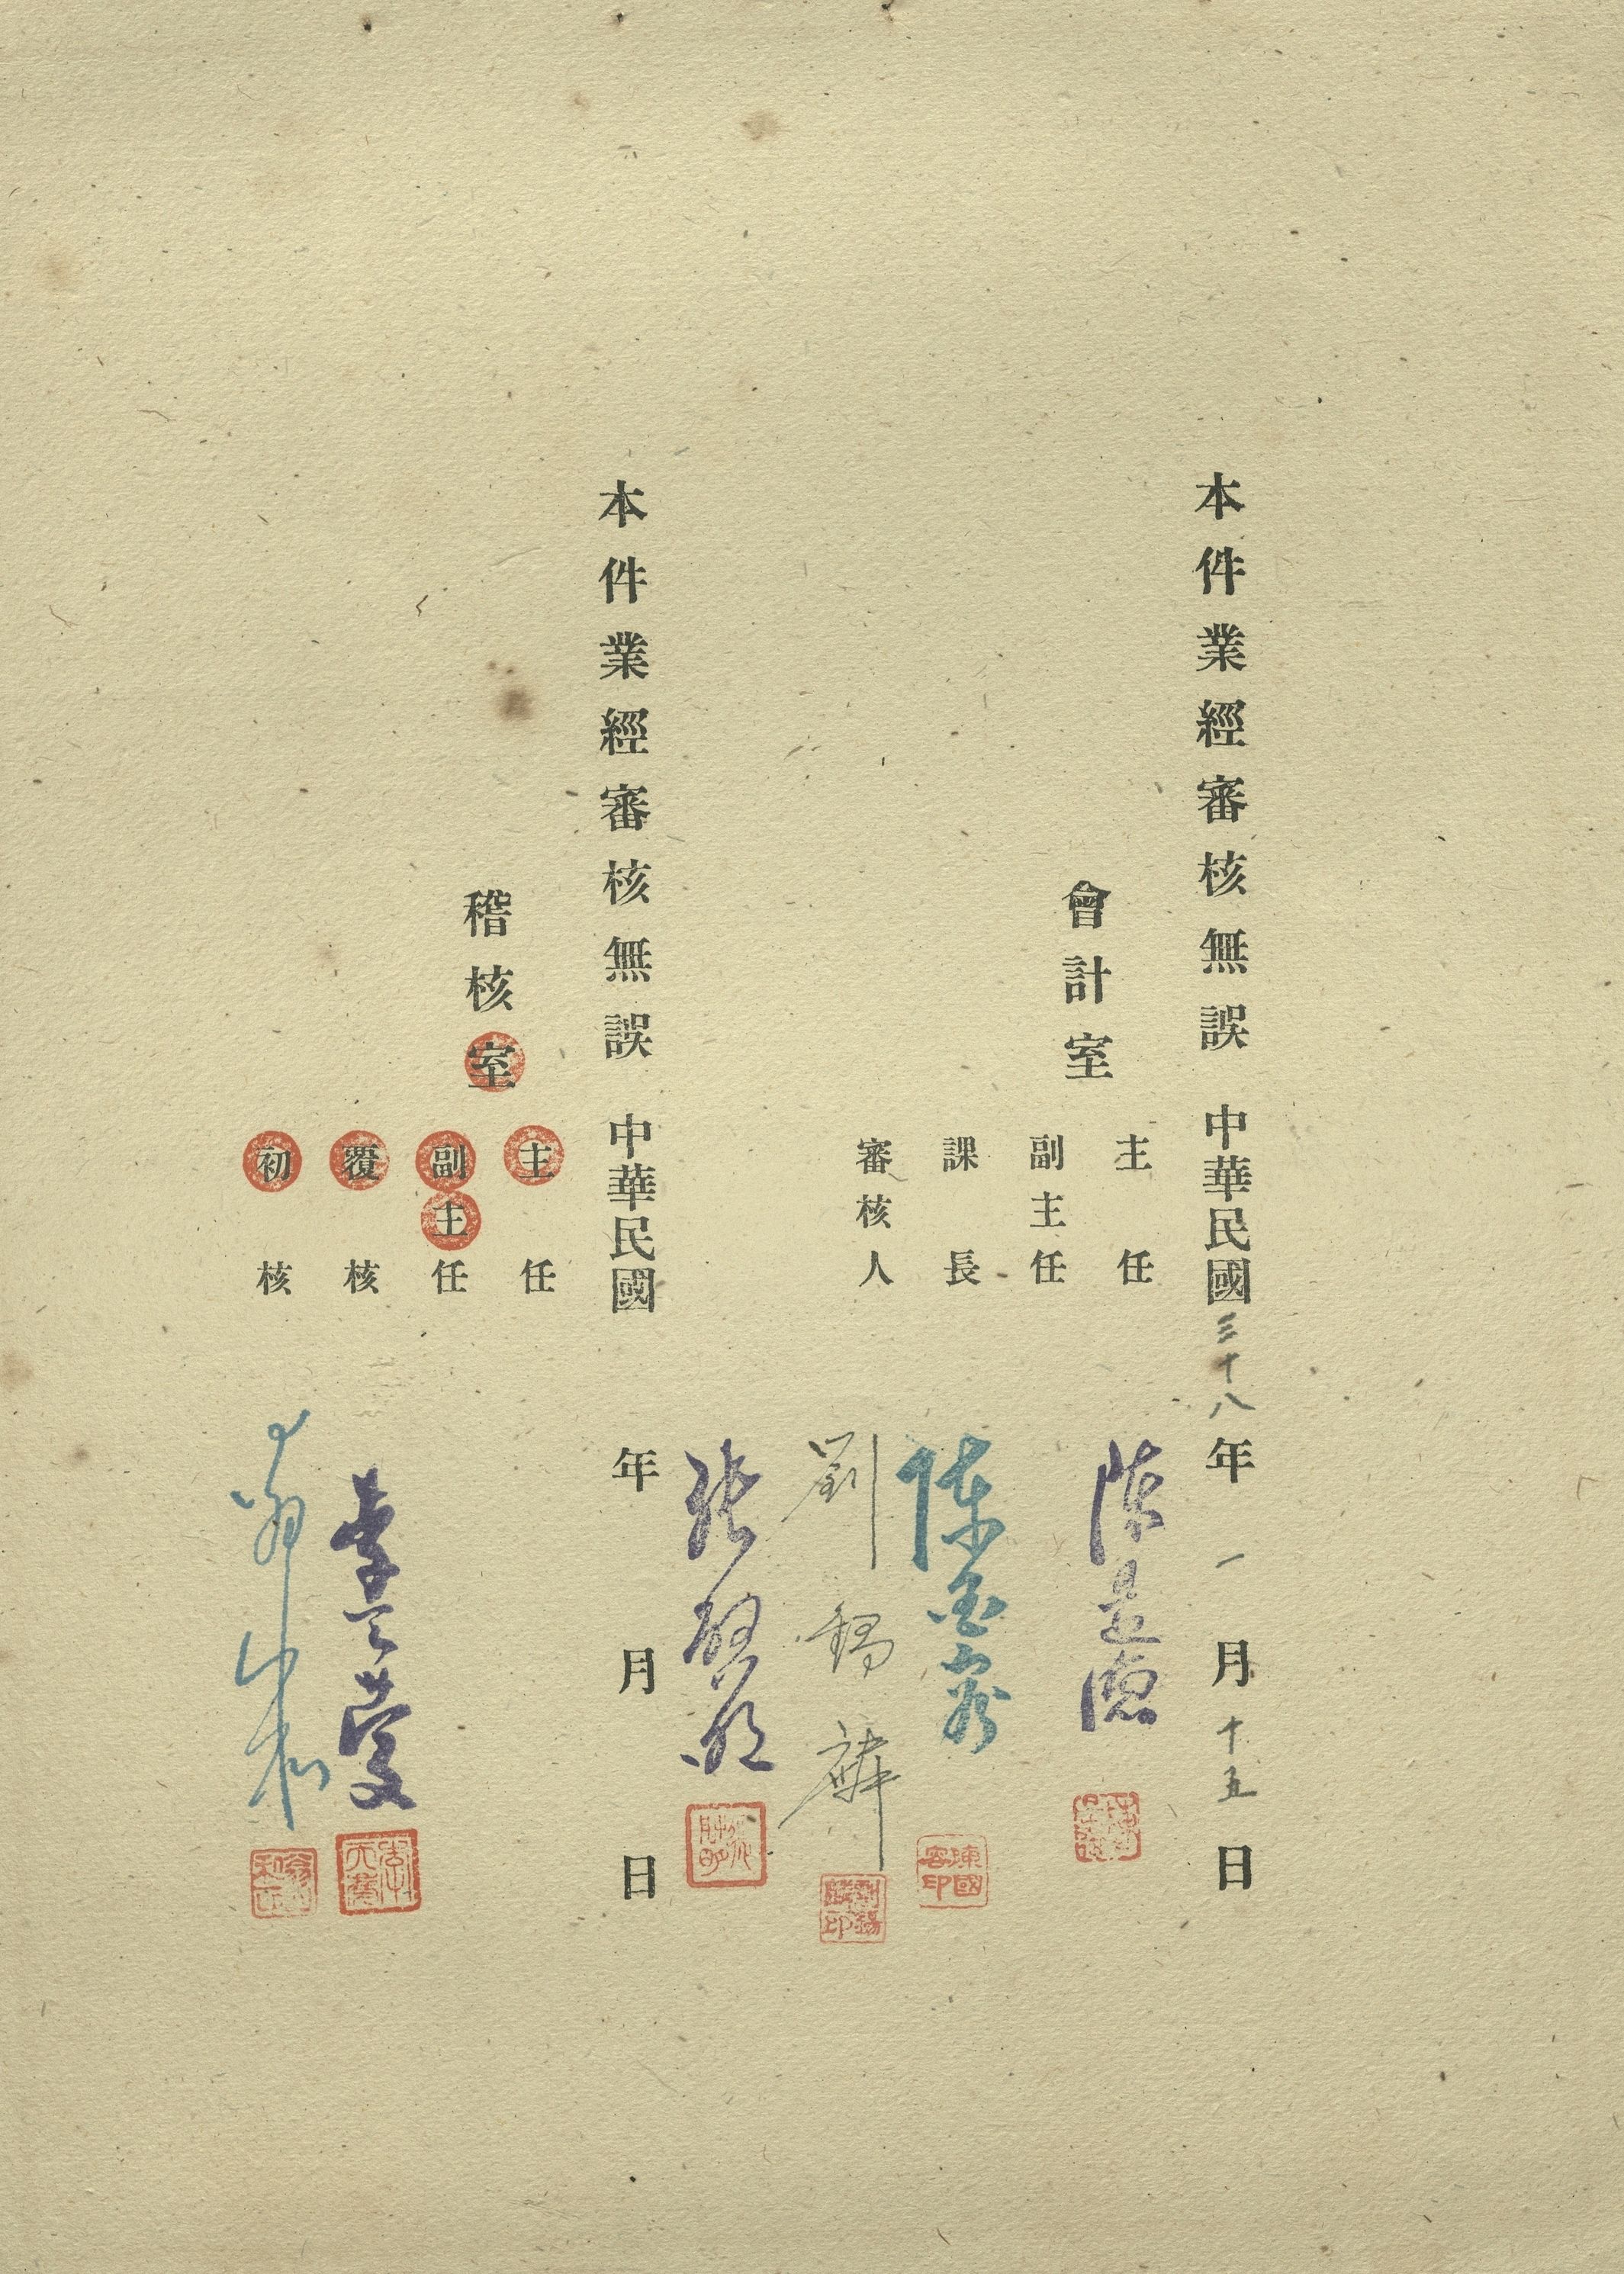 本件業經審核無誤 中華民國三十八年一月十五日
會計室
主任
副主任
課長
審核人
陳國容
劉錫麟
陳國容印
本件業經審核無誤 中華民國 年 月 日
稽核室
主任
副主任
覆核
初核